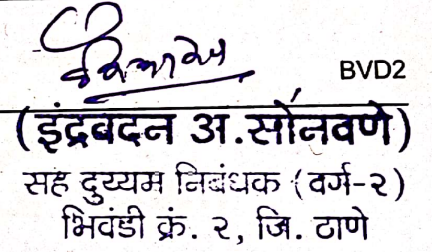 BVD2
(इंद्रवदन अ.सोनवणे)
सह दुय्यम निबंधक (वर्ग-२)
भिवंडी क्रं. २, जि. ठाणे